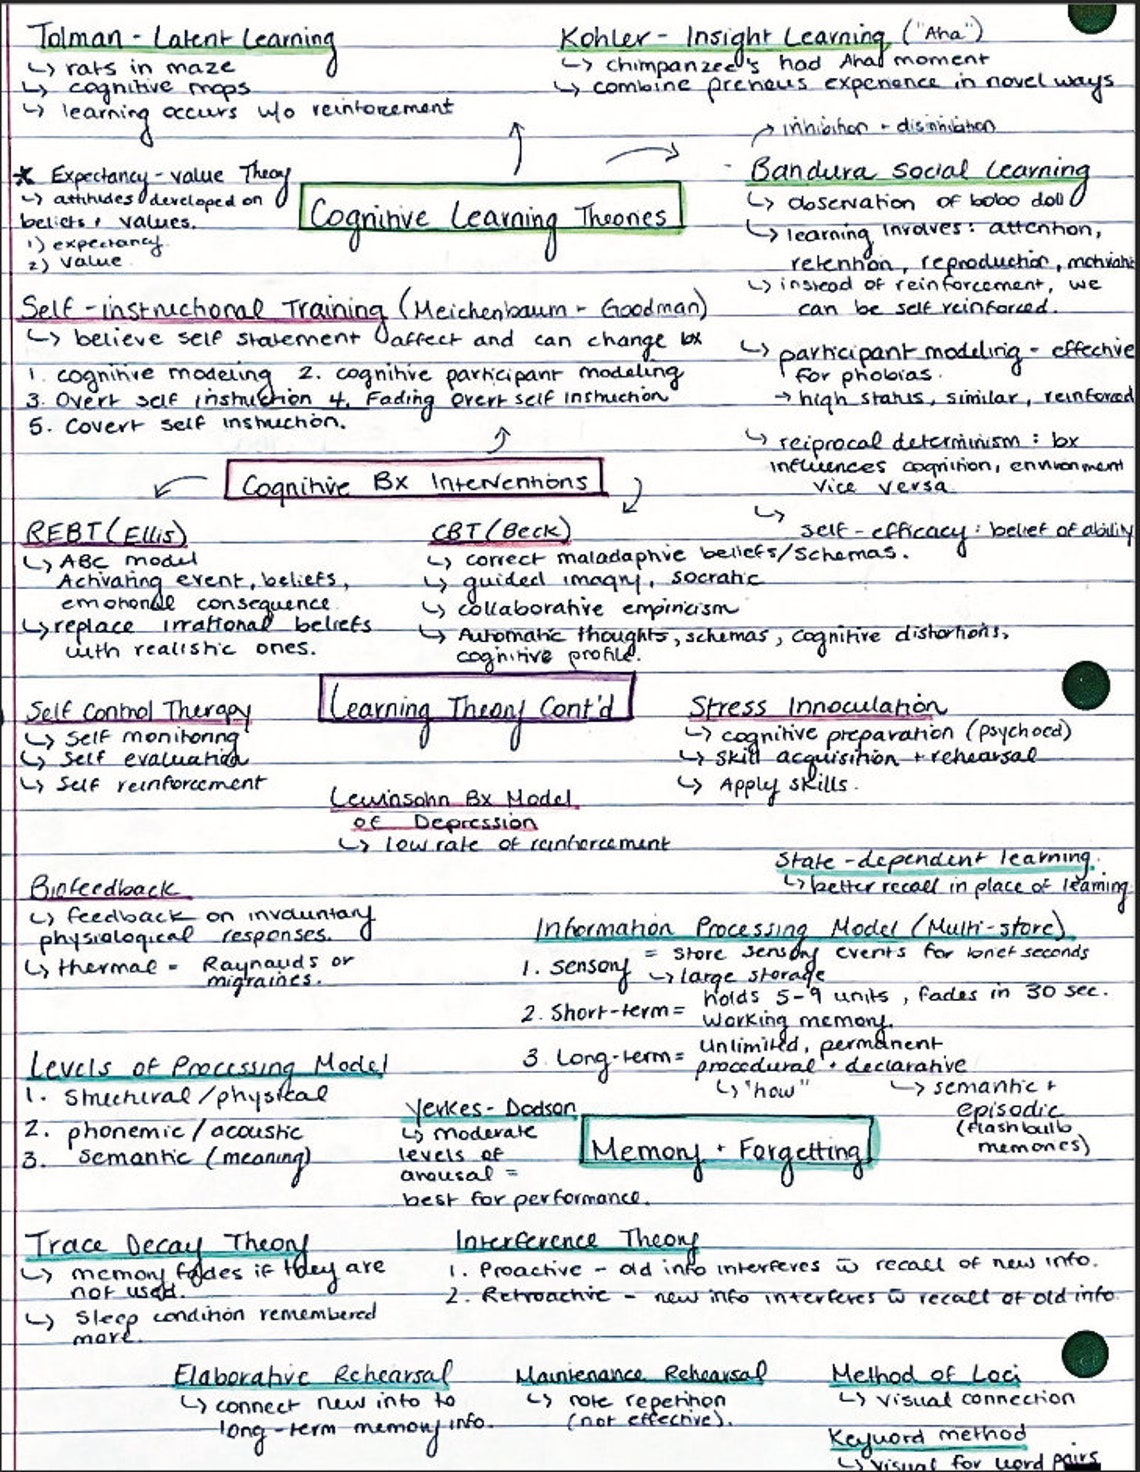 Tolman - Latent Learning
↳ rats in maze
↳ cognitive maps
↳ learning occurs w/o reinforcement
Kohler - Insight Learning ("Aha")
↳ chimpanzee's had Aha moment
↳ combine previous experience in novel ways
→ inhibition + disinhibition
* Expectancy-value Theory
↳ attitudes developed on
beliefs + values.
1) expectancy
2) value
Cognitive Learning Theories
Bandura Social Learning
↳ observation of bobo doll
↳ learning involves: attention,
retention, reproduction,
↳ instead of reinforcement, we
can be self reinforced.
↳ participant modeling - effective
for phobias.
→ high status, similar, reinforced
↳ reciprocal determinism: bx
influences cognition, environment
vice versa
↳ self-efficacy: belief of ability
Self-instructional Training (Meichenbaum + Goodman)
↳ believe self statement affect and can change bx
1. cognitive modeling 2. cognitive participant modeling
3. Overt self instruction 4. Fading overt self instruction
5. Covert self instruction.
Cognitive Bx Interventions
REBT (Ellis)
↳ ABC model
Activating event, beliefs,
emotional consequence
↳ replace irrational beliefs
with realistic ones.
CBT (Beck)
↳ correct maladaptive beliefs/schemas.
↳ guided imagry, socratic
↳ collaborative empiricism
↳ Automatic thoughts, schemas, cognitive distortions,
cognitive profile.
Learning Theory Cont'd
Self Control Therapy
↳ Self monitoring
↳ Self evaluation
↳ Self reinforcement
Stress Innoculation
↳ cognitive preparation (psychoed)
↳ skill acquisition + rehearsal
↳ Apply skills.
Lewinsohn Bx Model
of Depression
↳ low rate of reinforcement
State-dependent learning.
↳ better recall in place of learning
Biofeedback
↳ feedback on involuntary
physiological responses.
↳ thermal = Raynauds or
migraines.
Information Processing Model (Multi-store)
1. Sensory = store sensory events for brief seconds
↳ large storage
2. Short-term = holds 5-9 units, fades in 30 sec.
working memory.
3. Long-term = unlimited, permanent
procedural + declarative
↳ "how"
↳ semantic +
episodic
(flashbulb
memories)
Levels of Processing Model
1. Structural/physical
2. phonemic/acoustic
3. Semantic (meaning)
Yerkes-Dodson
↳ moderate
levels of
arousal =
best for performance.
Memory + Forgetting
Trace Decay Theory
↳ memory fades if they are
not used.
↳ Sleep condition remembered
more.
Interference Theory
1. Proactive - old info interferes w̄ recall of new info.
2. Retroactive - new info interferes w̄ recall of old info
Elaborative Rehearsal
↳ connect new info to
long-term memory info.
Maintenance Rehearsal
↳ note repetition
(not effective).
Method of Loci
↳ visual connection
Keyword method
↳ visual for word pairs